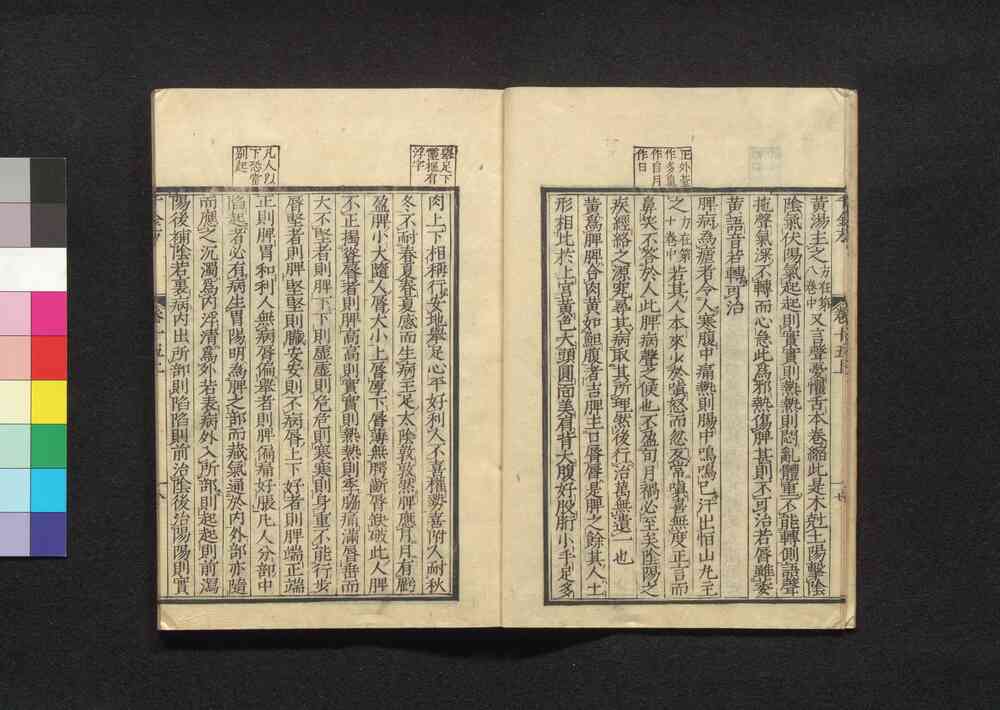 正外臺
作多自
作自月
作日
黄湯主之方在第
八卷中又言聲憂懼舌本卷縮此是木尅土陽擊陰
陰氣伏陽氣起起則實實則熱熱則悶亂體重不能轉側語聲
拖聲氣深不轉而心急此爲邪熱傷脾甚則不可治若脣雖萎
黄語音若轉可治
脾病爲瘧者令人寒腹中痛熱則腸中鳴鳴已汗出恒山丸主
之方在第
十卷中若其人本來少於嗔怒而忽反常嗔喜無度正言而
鼻笑不答於人此脾病聲之候也不盈旬月禍必至矣陰陽之
疾經絡之源究尋其病取其所理然後行治萬無遺一也
黄爲脾脾合肉黄如鱓腹者吉脾主口脣脣是脾之餘其人土
形相比於上宮黄色大頭圓面美肩背大腹好股胻小手足多
離足下
靈樞有
浮字
肉上下相稱行安地舉足心平好利人不喜權勢喜附人耐秋
冬不耐春夏春夏感而生病主足太陰敦敦然脾應月月有虧
盈脾小大隨人脣大小上脣厚下脣薄無腭齗脣缺破此人脾
不正揭聳脣者則脾高高則實實則熱熱則季脇痛滿脣垂而
大不堅者則脾下下則虛虛則危危則寒寒則身重不能行步
脣堅者則脾堅堅則臟安安則不病脣上下好者則脾端正端
正則脾胃和利人無病脣偏舉者則脾偏痛好脹凡人分部中
凡人以
下恐當
別起
陷起者必有病生胃陽明爲脾之部而藏氣通於内外部亦隨
而應之沉濁爲内浮清爲外若表病外入所部則起起則前瀉
陽後補陰若裏病内出所部則陷陷則前治陰後治陽陽則實